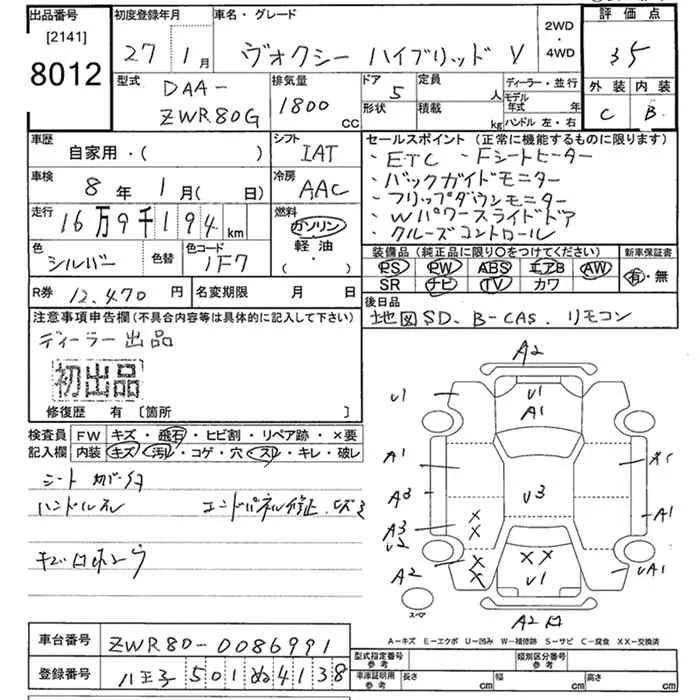 出品番号
[2141]
8012
初度登録年月
27年 1月
車名・グレード
ヴォクシー ハイブリッド V
2WD
・
4WD
評価点
35
外装 内装
C B
型式
DAA-
ZWR80G
排気量
1800 CC
ドア
5
定員
人
形状
積載
kg
ディーラー・並行
モデル年式 年
ハンドル 左・右
車歴
自家用・( )
シフト
IAT
車検
8年 1月( 日)
冷房
AAC
走行
16万9千194 km
燃料
ガソリン
軽油
・
色
シルバー
色替
色コード
1F7
R券 12,470円
名変期限 月 日
セールスポイント (正常に機能するものに限ります)
・ETC ・Fシートヒーター
・バックガイドモニター
・フリップダウンモニター
・Wパワースライドドア
・クルーズコントロール
装備品 (純正品に限り○をつけてください)
PS PW ABS エアB AW
SR ナビ TV カワ
新車保証書
有・無
後日品
地図SD、B-CAS、リモコン
注意事項申告欄 (不具合内容等は具体的に記入して下さい)
ディーラー出品
初出品
修復歴 有 [箇所 ]
検査員
記入欄
FW キズ・飛石・ヒビ割・リペア跡・×要
内装 キズ・汚レ・コゲ・穴・スレ・キレ・破レ
ハンドルスレ
A2
U1
U1
A1
A1
A3
U3
A1
A3
U2
A2
U1
UA1
A2
スペア
A-キズ E-エクボ U-凹み W-補修跡 S-サビ C-腐食 XX-交換済
車台番号 ZWR80-0086991
登録番号 八王子 501 ぬ 4138
型式指定番号
参考
類別区分番号
参考
車庫証明用
参考
長さ cm
幅 cm
高さ cm